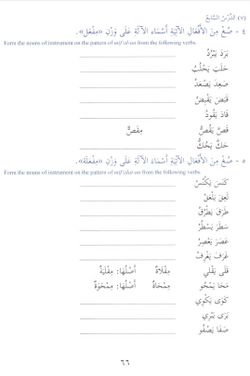 (٧) الدَّرْسُ السَّابِعُ
٤ - صُغْ مِنَ الأَفْعَالِ الآتِيَةِ أَسْمَاءَ الآلَةِ عَلَى وَزْنِ «مِفْعَلٍ».
Form the nouns of instrument on the pattern of mifʿalun from the following verbs.
بَرَدَ يَبْرُدُ
حَلَبَ يَحْلُبُ
صَعِدَ يَصْعَدُ
قَبَضَ يَقْبِضُ
قَادَ يَقُودُ
قَصَّ يَقُصُّ مِقَصٌّ
حَكَّ يَحُكُّ
٥ - صُغْ مِنَ الأَفْعَالِ الآتِيَةِ أَسْمَاءَ الآلَةِ عَلَى وَزْنِ «مِفْعَلَةٍ».
Form the nouns of instrument on the pattern of mifʿalatun from the following verbs.
كَنَسَ يَكْنُسُ
لَعِقَ يَلْعَقُ
طَرَقَ يَطْرُقُ
سَطَرَ يَسْطُرُ
عَصَرَ يَعْصِرُ
غَرَفَ يَغْرِفُ
قَلَى يَقْلِي مِقْلَاةٌ أَصْلُهَا: مِقْلَيَةٌ
مَحَا يَمْحُو مِمْحَاةٌ أَصْلُهَا: مِمْحَوَةٌ
كَوَى يَكْوِي
بَرَى يَبْرِي
صَفَا يَصْفُو
٦٦